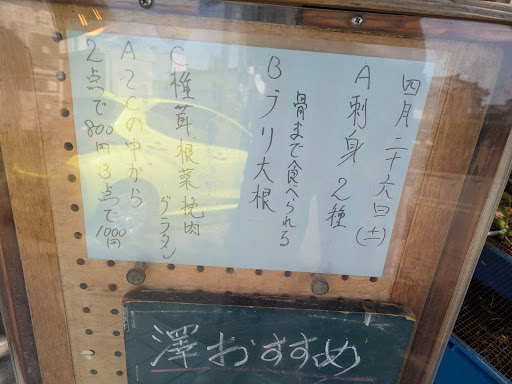 四月二十六日(土)
A刺身2種
骨まで食べられる
Bブリ大根
C椎茸根菜挽肉
グラタン
A〜Cの中から
2点で800円3点で1000円
澤おすすめ